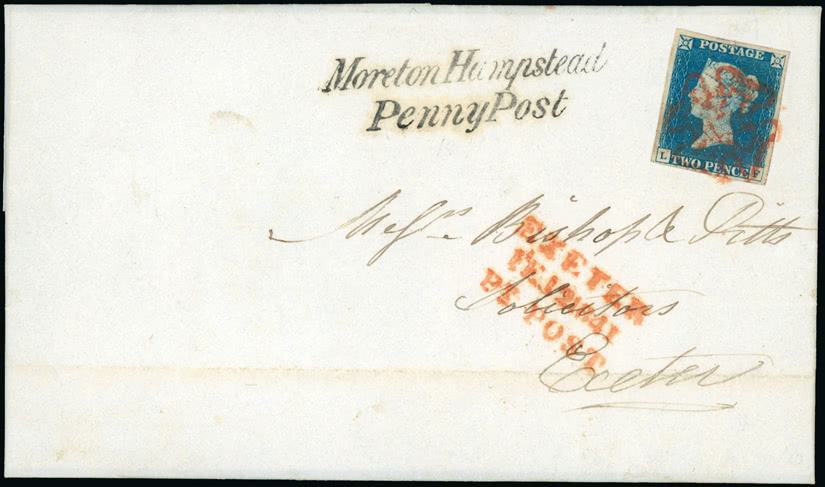 Moreton Hampstead
Penny Post
POSTAGE
L TWO PENCE F
Messrs Bishop & Pitts
Solicitors
Exeter
EXETER
1841
PY POST